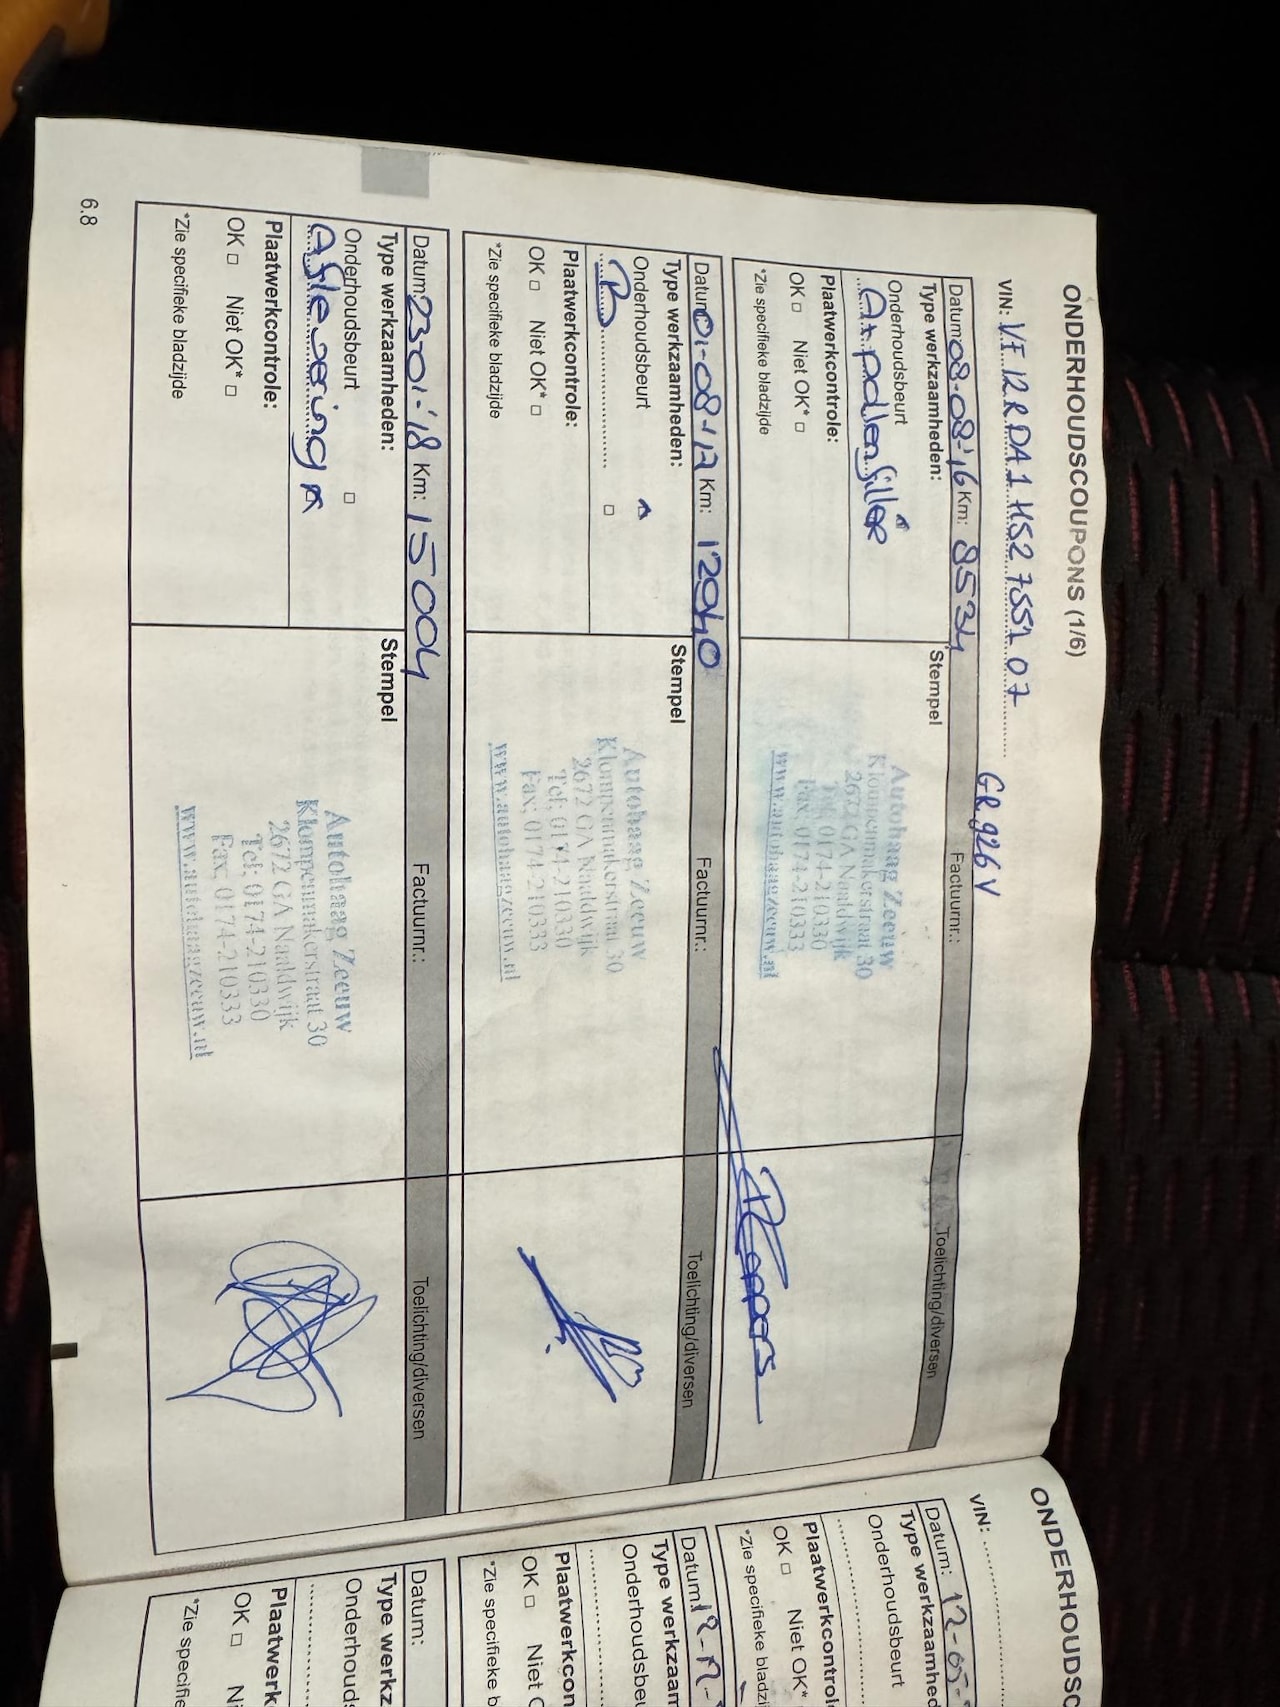 ONDERHOUDSCOUPONS (1/6)
VIN: VF12RDA1H52755707 GR926V
Datum: 08-08-'16 Km: 8534 Factuurnr.: Toelichting/diversen
Type werkzaamheden: Stempel
Onderhoudsbeurt
A + pollenfilter
Plaatwerkcontrole:
OK □ Niet OK* □
*Zie specifieke bladzijde
Autohaag Zeeuw
Klompenmakerstraat 30
2672 GA Naaldwijk
Tel: 0174-210330
Fax: 0174-210333
www.autohaagzeeuw.nl
Datum: 01-08-'17 Km: 12040 Factuurnr.: Toelichting/diversen
Type werkzaamheden: Stempel
Onderhoudsbeurt
B □
Plaatwerkcontrole:
OK □ Niet OK* □
*Zie specifieke bladzijde
Autohaag Zeeuw
Klompenmakerstraat 30
2672 GA Naaldwijk
Tel: 0174-210330
Fax: 0174-210333
www.autohaagzeeuw.nl
Datum: 23-01-'18 Km: 15004 Factuurnr.: Toelichting/diversen
Type werkzaamheden: Stempel
Onderhoudsbeurt □
Aflevering
Plaatwerkcontrole:
OK □ Niet OK* □
*Zie specifieke bladzijde
Autohaag Zeeuw
Klompenmakerstraat 30
2672 GA Naaldwijk
Tel: 0174-210330
Fax: 0174-210333
www.autohaagzeeuw.nl
6.8
ONDERHOUDSC
VIN:
Datum: 12-05-
Type werkzaamhed
Onderhoudsbeurt
Plaatwerkcontrol
OK □ Niet OK*
*Zie specifieke bladzi
Datum:
Type werkzaam
Onderhoudsbeu
Plaatwerkcon
OK □ Niet O
*Zie specifieke b
Datum:
Type werkz
Onderhouds
Plaatwerk
OK □ Ni
*Zie specifie